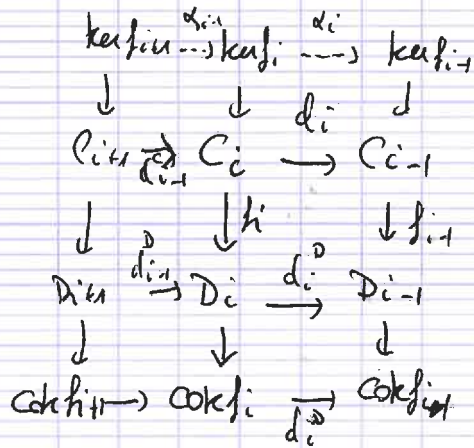 ker f_{i+1} ⇢^{α_{i+1}} ker f_i ⇢^{α_i} ker f_{i-1}
↓ ↓ ↓
C_{i+1} →_{d^C_{i-1}} C_i →^{d_i} C_{i-1}
↓ ↓ f_i ↓ f_{i-1}
D_{i+1} →^{d^D_{i-1}} D_i →^{d_i^D} D_{i-1}
↓ ↓ ↓
cok f_{i+1} → cok f_i →_{d_i^D} cok f_{i-1}